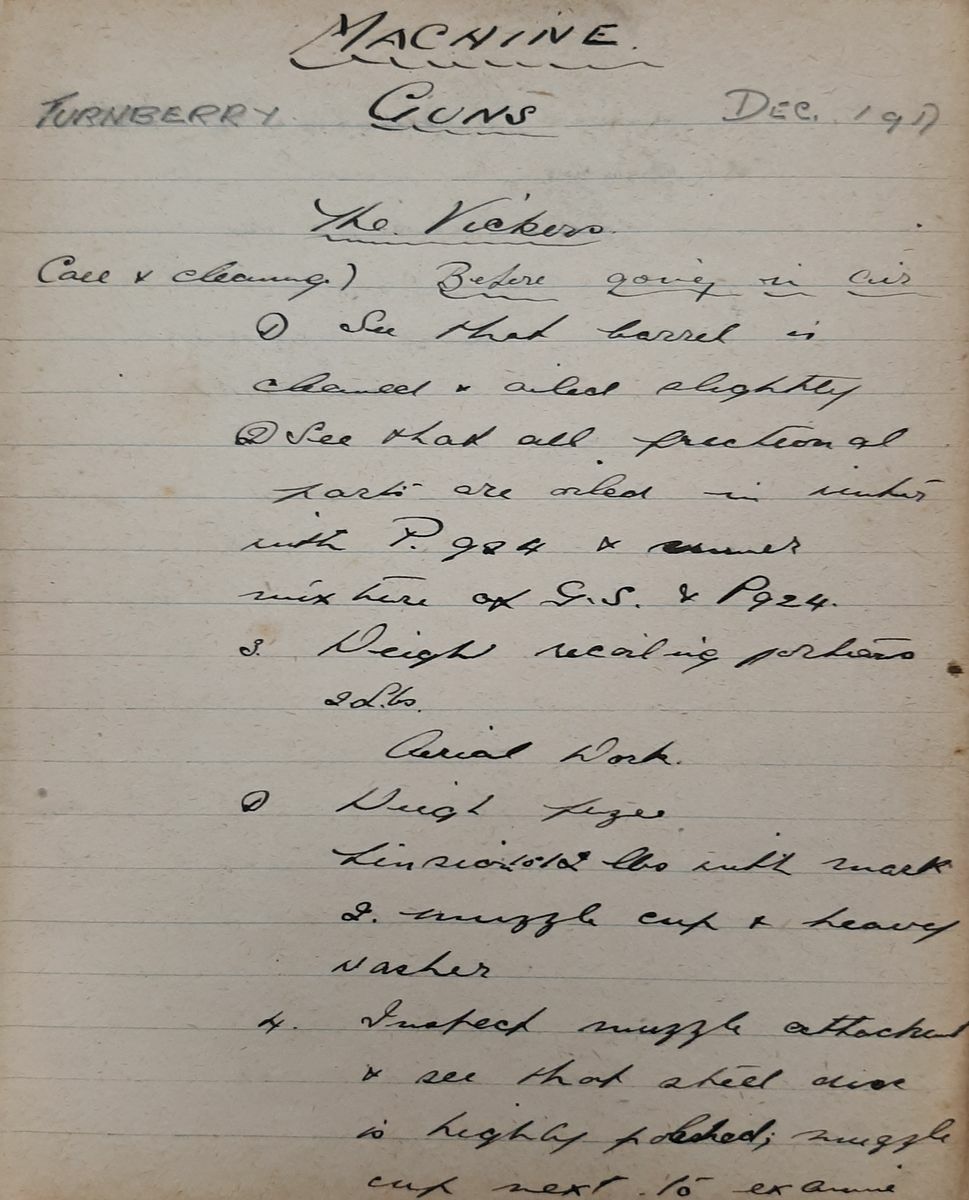 MACHINE.
TURNBERRY. GUNS DEC. 1917
The Vickers.
Care & cleaning.) Before going in air
① See that barrel is
cleaned & oiled slightly
② See that all frictional
parts are oiled in winter
with P. 924 &
mixture of G.S. & P924.
3. Weigh recoiling portions
2 Lbs.
Aerial Work.
① Weigh fuzee
tension lbs with mark
2. muzzle cup & heavy
washer
4. Inspect muzzle attachment
& see that steel disc
is highly polished; muzzle
cup next. To examine